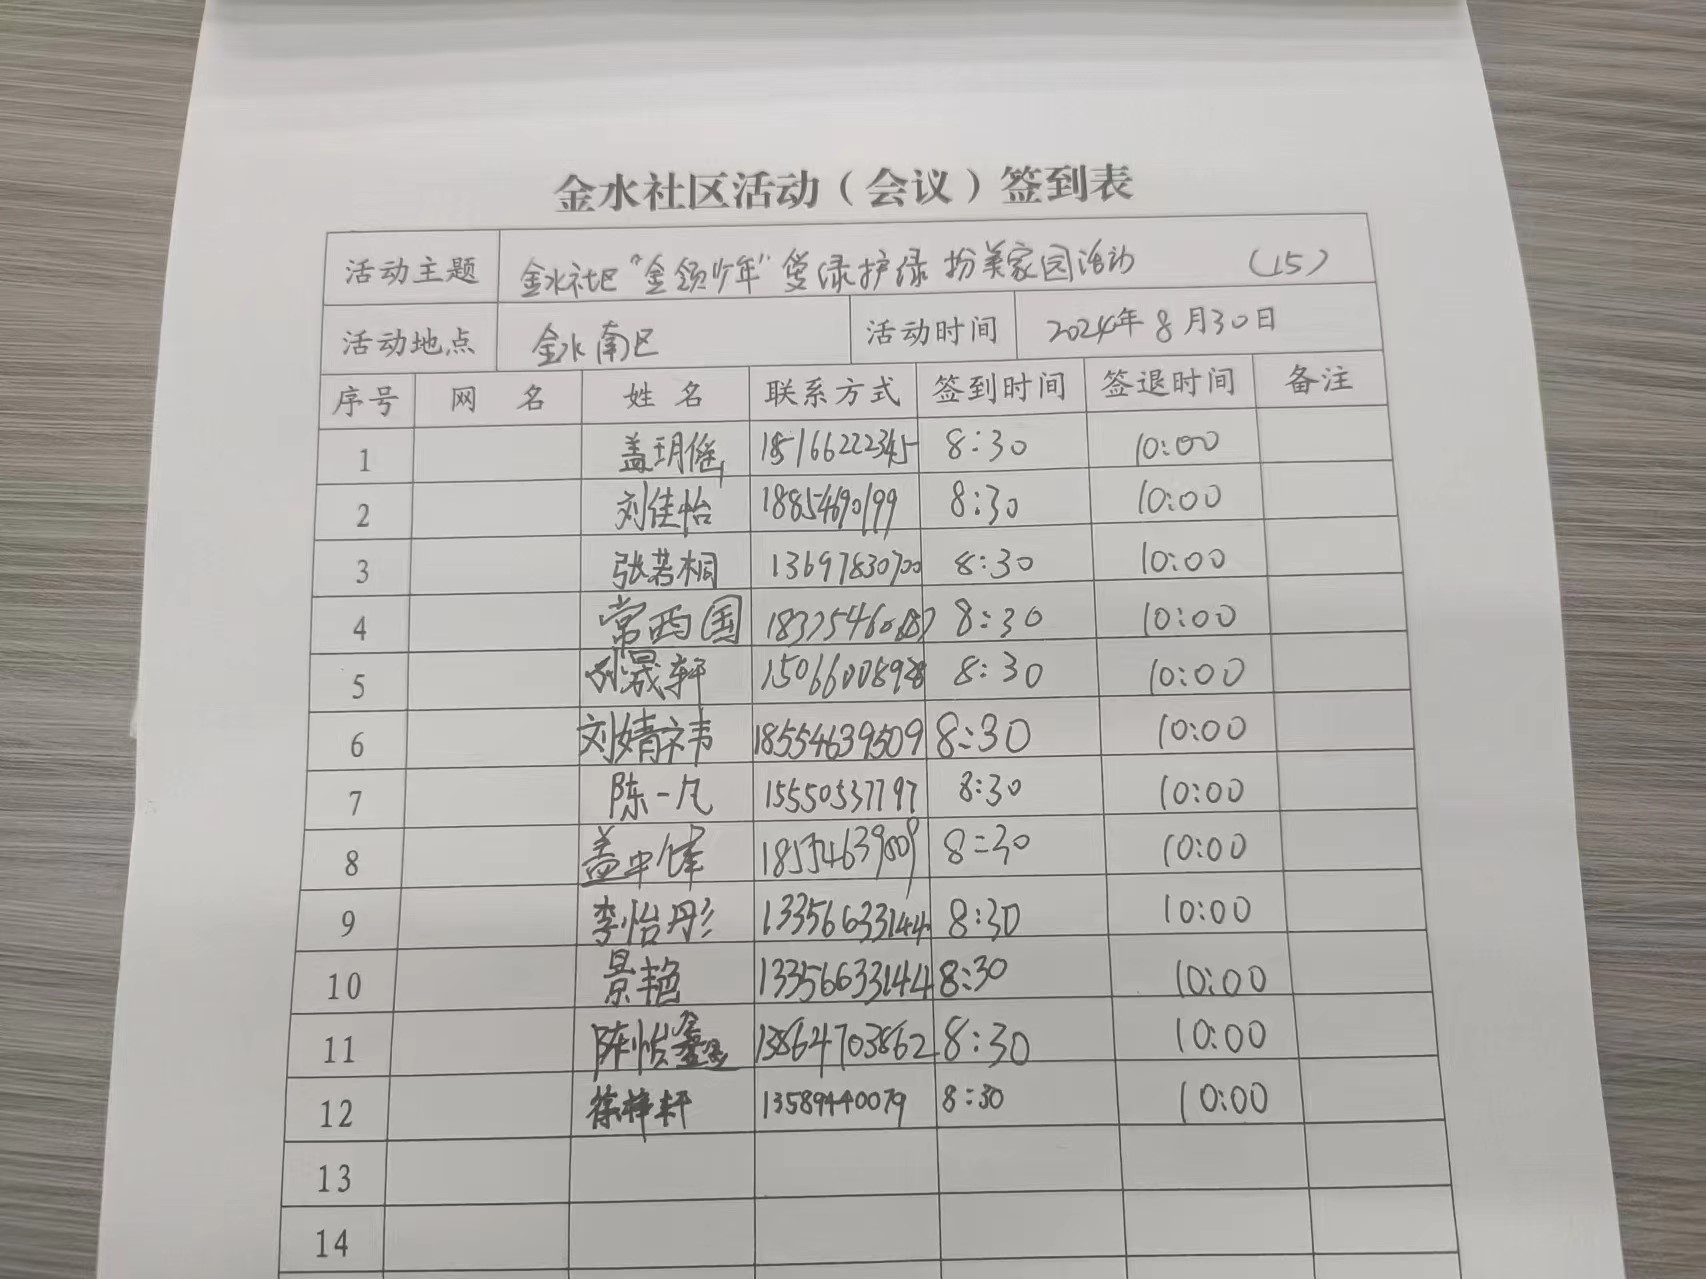 金水社区活动（会议）签到表
活动主题 金水社区“金领少年”爱绿护绿 扮美家园活动 （15）
活动地点 金水南区 活动时间 2024年8月30日
序号 网 名 姓 名 联系方式 签到时间 签退时间 备注
1 盖玥傜 18516622345 8:30 10:00
2 刘佳怡 18854690199 8:30 10:00
3 张若桐 13697830700 8:30 10:00
4 常西国 8:30 10:00
5 刘晟轩 8:30 10:00
6 刘婧祎 18554639509 8:30 10:00
7 陈一凡 15550537797 8:30 10:00
8 盖中 8:30 10:00
9 李怡彤 13356633144 8:30 10:00
10 景艳 13356633144 8:30 10:00
11 陈怡鑫 13864703862 8:30 10:00
12 徐梓轩 13589440079 8:30 10:00
13
14